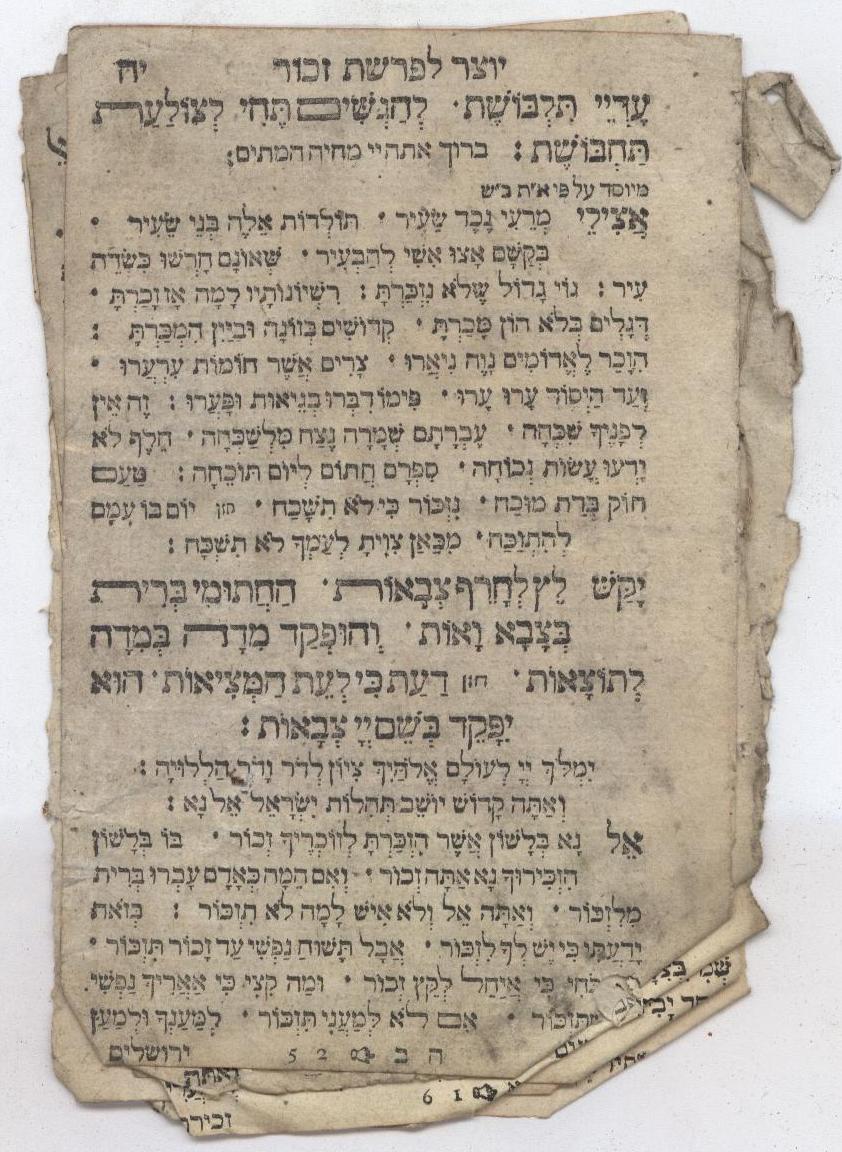 יוצר לפרשת זכור יח
עֲדָיֵי תִּלְבּוֹשֶׁת· לְהַגְשִׁים תְּחִי לְצוֹלַעַת
תַּחְבּוֹשֶׁת: ברוך אתה יי מחיה המתים:
מיוסד על פי א״ת ב״ש
אֲצִילֵי מְרֵעִי נֶכֶד שֵׂעִיר· תּוֹלְדוֹת אֵלֶּה בְּנֵי שֵׂעִיר·
בְּקָשָׁם אָצוּ אִשִּׁי לְהַבְעִיר· שְׁאוֹנָם חָרְשׁוּ כִּשְׂדֵה
עִיר: גּוֹי גָּדוֹל שֶׁלֹּא נִזְכַּרְתָּ: רִשְׁיוֹנוֹתָיו לָמָּה אָז זָכַרְתָּ·
דְּגָלִים בְּלֹא הוֹן מָכַרְתָּ· קְדוֹשִׁים בְּזוֹנָה וּבְיַיִן הִמְכַּרְתָּ:
הִזָּכֵר לֶאֱדוֹמִים נָוֶה נִיאֲרוּ· צָרִים אֲשֶׁר חוֹמוֹת עִרְעֲרוּ·
וְעַד הַיְסוֹד עָרוּ עָרוּ· פִּימוֹ דִבְּרוּ בְגֵיאוּת וּפָעֲרוּ: זֶה אֵין
לְפָנֶיךָ שִׁכְחָה· עֶבְרָתָם שְׁמָרָה נֶצַח מִלְּשַׁכְּחָה· חֵלֶף לֹא
יָדְעוּ עֲשׂוֹת נְכוֹחָה· סִפְרָם חָתוֹם לְיוֹם תּוֹכֵחָה: טַעַם
חוֹק בְּדָת מוּכָח· נִזְכּוֹר כִּי לֹא תִשְׁכַּח· חזן יוֹם בּוֹ עִמָּם
לְהִתְוַכַּח· מִכָּאן צִוִּיתָ לְעַמְּךָ לֹא תִשְׁכַּח:
יָקַשׁ לֵץ לְחָרֵף צְבָאוֹת· הַחֲתוּמֵי בְּרִית
בְּצָבָא וָאוֹת· וְהוּפְקַד מִדָּה בְּמִדָּה
לְתוֹצָאוֹת· חזן דַּעַת כִּי לְעֵת הַמְּצִיאוֹת· הוּא
יִפָּקֵד בְּשֵׁם יְיָ צְבָאוֹת:
יִמְלֹךְ יְיָ לְעוֹלָם אֱלֹהַיִךְ צִיּוֹן לְדֹר וָדֹר הַלְלוּיָהּ:
וְאַתָּה קָדוֹשׁ יוֹשֵׁב תְּהִלּוֹת יִשְׂרָאֵל אֵל נָא:
אֵל נָא בַּלָּשׁוֹן אֲשֶׁר הִזְכַּרְתָּ לְזוֹכְרֶיךָ זְכוֹר· בּוֹ בַּלָּשׁוֹן
הִזְכִּירוּךָ נָא אַתָּה זְכוֹר· וְאִם הֵמָּה כְּאָדָם עָבְרוּ בְּרִית
מִלִּזְכּוֹר· וְאַתָּה אֵל וְלֹא אִישׁ לָמָּה לֹא תִזְכּוֹר: בְּזֹאת
יָדַעְתִּי כִּי יֵשׁ לְךָ לִזְכּוֹר· אֲבָל תָּשׁוּחַ נַפְשִׁי עַד זָכוֹר תִּזְכּוֹר·
כִּי אֲיַחֵל לְקֵץ זְכוֹר· וּמַה קִּצִּי כִּי אַאֲרִיךְ נַפְשִׁי·
תִזְכּוֹר· אִם לֹא לְמַעֲנִי תִּזְכּוֹר· לְמַעַנְךָ וּלְמַעַן
ה ב 520 ירושלים
61